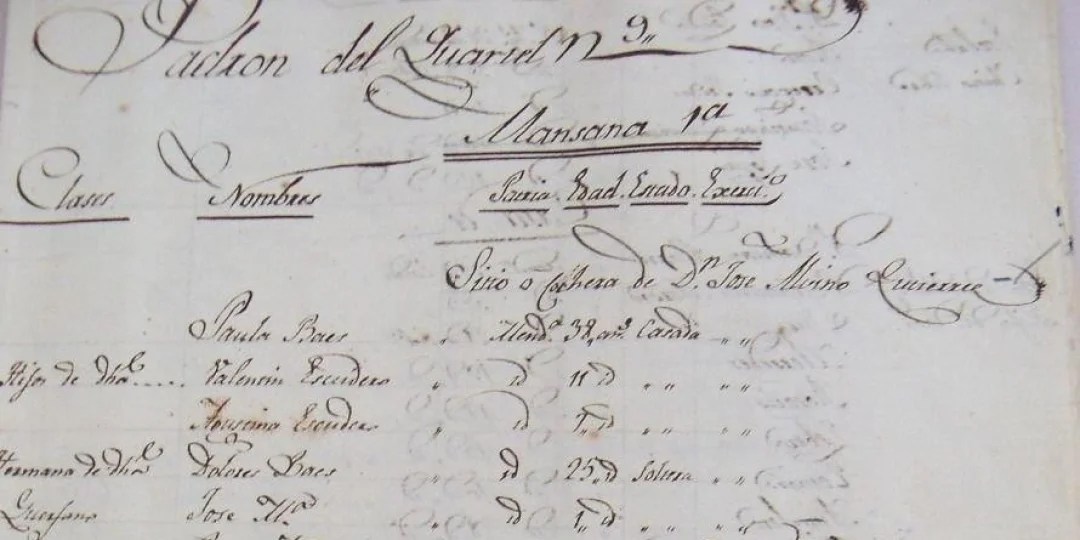 Padron del Quartel N 9,,
Mansana 1a
Clases Nombres Patria . Edad . Estado . Exerci.o
Sitio o Cochera de D.n Jose Alvino Gutierrez
Paula Baes " Mend.a 38,, as. Casada " "
Hijos de dha..... Valentin Escudero " id 11 id " " " "
Escudero " id 7,, id " " " "
Hermana de dha Dolores Baes " id 25,, id soltera " "
Huerfano Jose M.a " id 1,, id " " " "